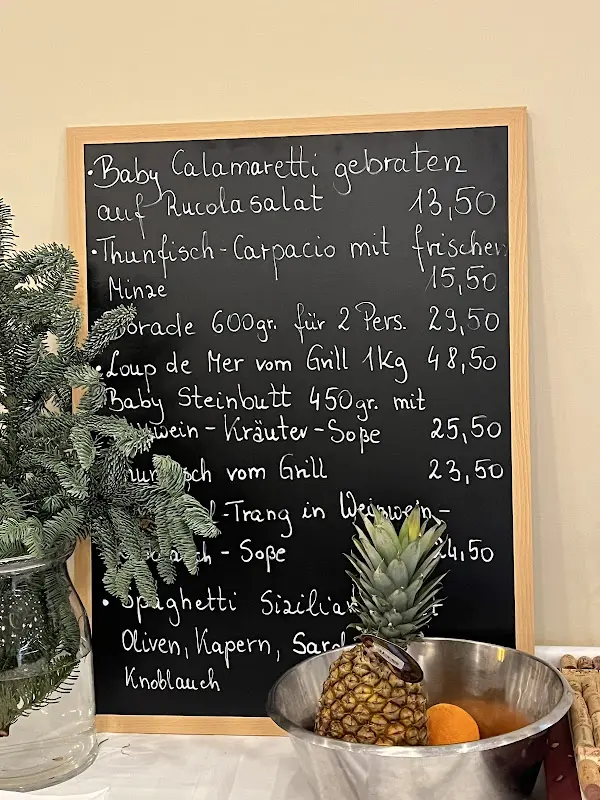 • Baby Calamaretti gebraten
auf Rucolasalat 13,50
• Thunfisch-Carpacio mit frischer
Minze 15,50
Dorade 600gr. für 2 Pers. 29,50
• Loup de Mer vom Grill 1kg 48,50
Baby Steinbutt 450gr. mit
-Kräuter-Soße 25,50
vom Grill 23,50
-Trang in Weißwein-
-Soße 24,50
• Spaghetti
Oliven, Kapern,
Knoblauch